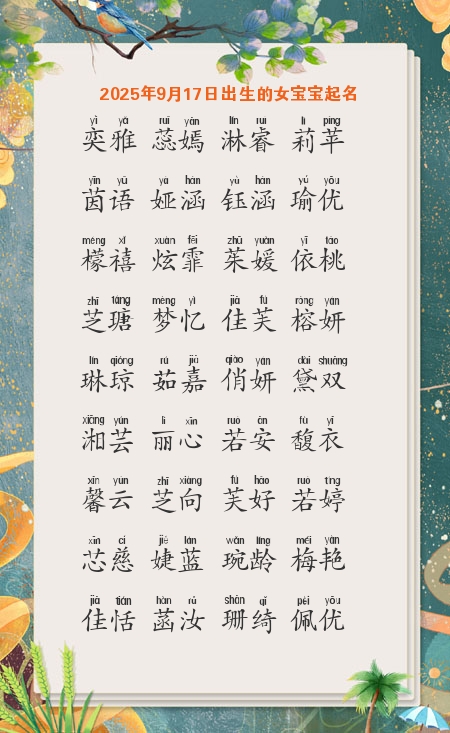 2025年9月17日出生的女宝宝起名
yì yǎ ruǐ yān lín ruì lì píng
奕雅 蕊嫣 淋睿 莉苹
yīn yǔ yà hán yù hán yú yōu
茵语 娅涵 钰涵 瑜优
méng xǐ xuàn fēi zhū yuàn yī táo
檬禧 炫霏 茱媛 依桃
zhī táng mèng yì jiā fú róng yán
芝瑭 梦忆 佳芙 榕妍
lín qióng rú jiā qiào yán dài shuāng
琳琼 茹嘉 俏妍 黛双
xiāng yún lì xīn ruò ān fù yī
湘芸 丽心 若安 馥衣
xīn yún zhī xiàng fú hǎo ruò tíng
馨云 芝向 芙好 若婷
xīn cí jié lán wǎn líng méi yàn
芯慈 婕蓝 琬龄 梅艳
jiā tián hàn rǔ shān qǐ pèi yōu
佳恬 菡汝 珊绮 佩优